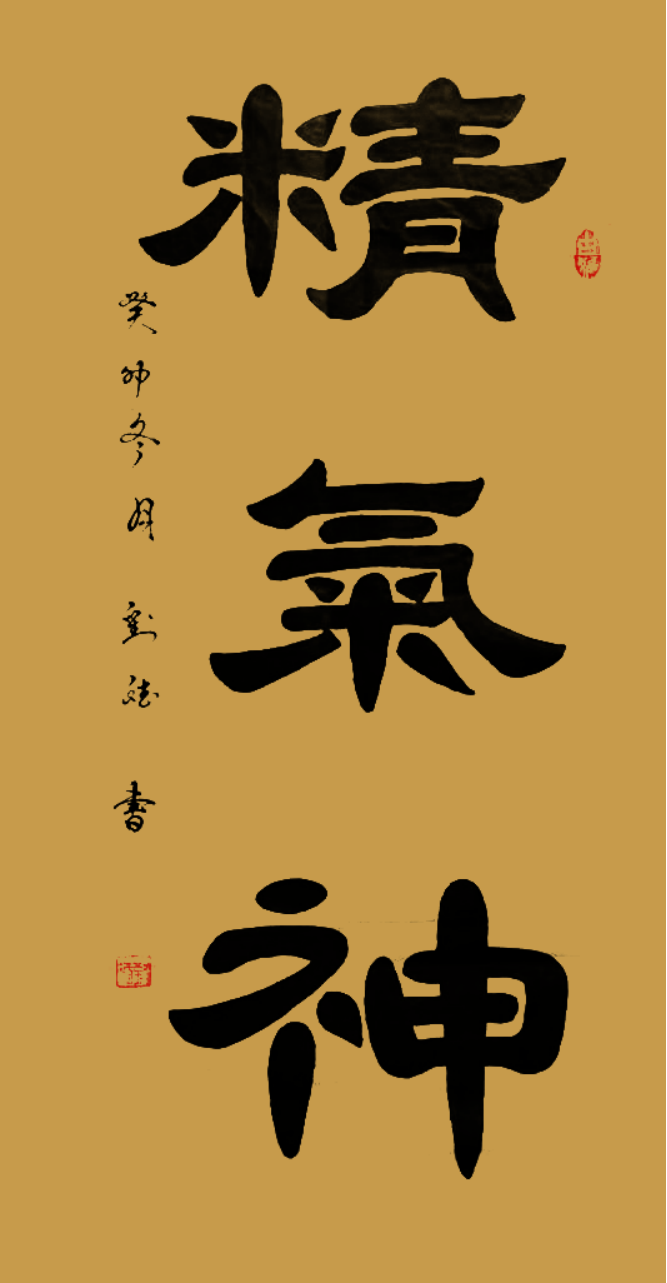 精氣神
癸卯冬月 劉 書